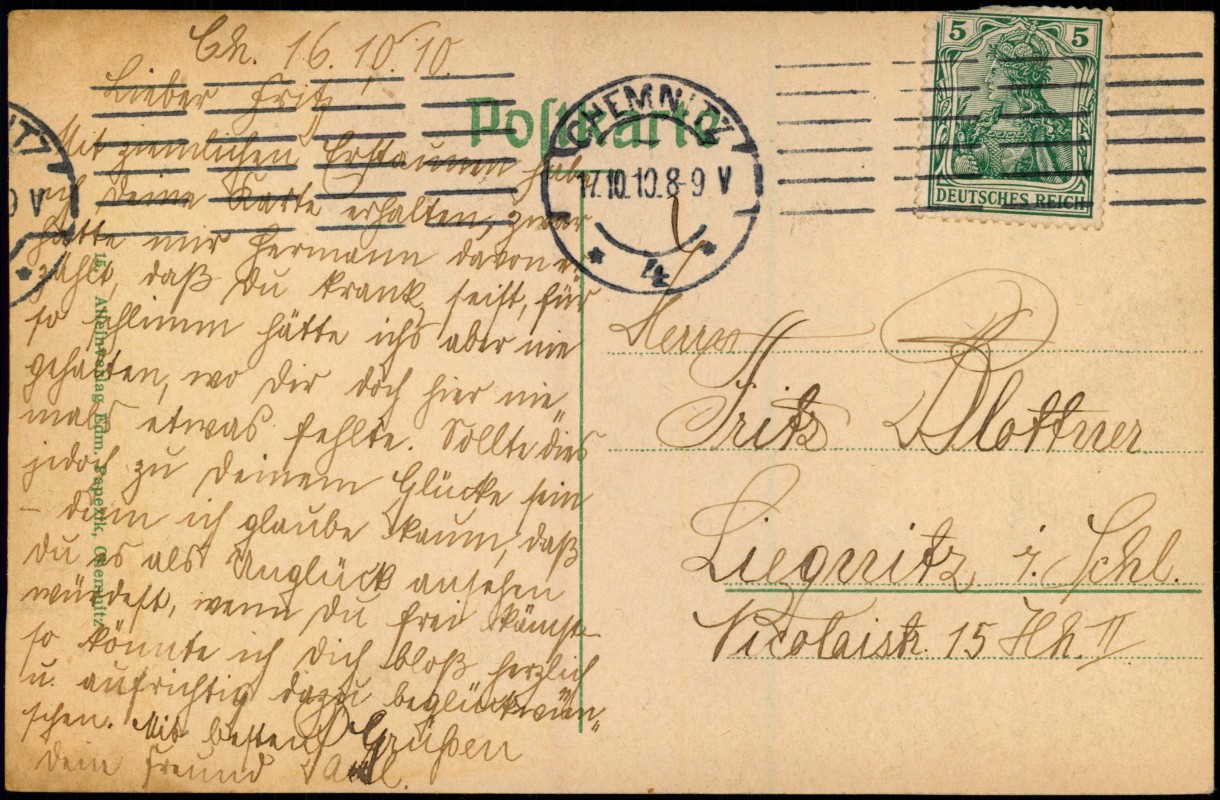 Ch. 16.10.10.
Lieber Fritz
Mit ziemlichen Erstaunen habe
ich Deine Karte erhalten, zwar
hatte mir Hermann davon er-
zählt, daß Du krank seist, für
so schlimm hätte ichs aber nie
gehalten, wo Dir doch hier nie„
mals etwas fehlte. Sollte dies
jedoch zu Deinem Glücke sein
– denn ich glaube kaum, daß
Du es als Unglück ansehen
würdest, wenn Du frei kämst –
so könnte ich Dich bloß herzlich
u. aufrichtig dazu beglückwün„
schen. Mit besten Grüßen
Dein Freund
Postkarte
CHEMNITZ
17.10.10.8-9 V
* 4 *
5 5
DEUTSCHES REICH
Herrn
Fritz Plottner
Liegnitz i. Schl.
Nicolaistr. 15 Hh. II
15. Alleinverlag Edm. Papezik, Chemnitz